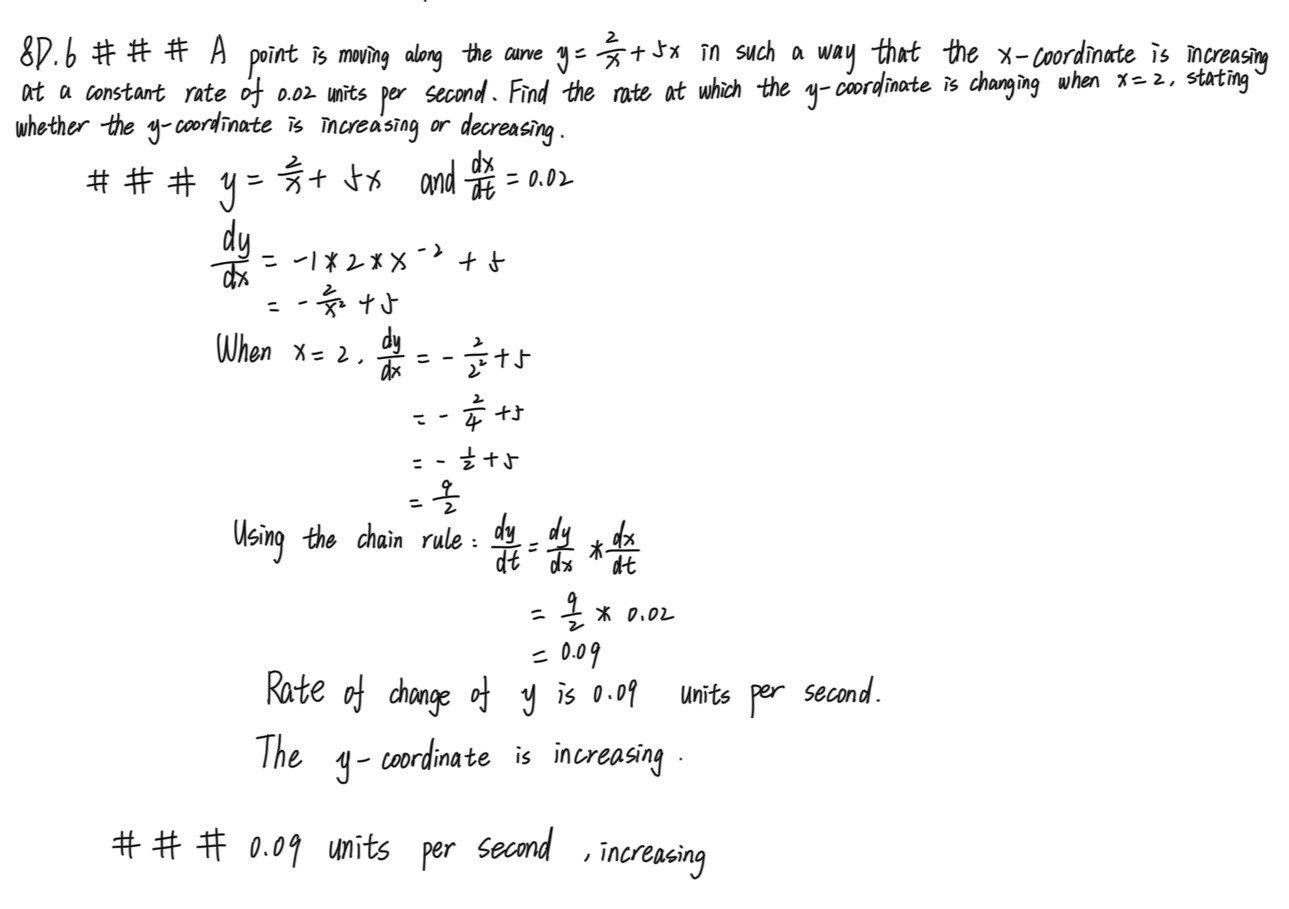 8D.6 # # # A point is moving along the curve y = 2/x + 5x in such a way that the x-coordinate is increasing
at a constant rate of 0.02 units per second. Find the rate at which the y-coordinate is changing when x=2, stating
whether the y-coordinate is increasing or decreasing.
# # # y = 2/x + 5x and dx/dt = 0.02
dy/dx = -1*2*x^-2 + 5
= -2/x² + 5
When x=2, dy/dx = -2/2² + 5
= -2/4 + 5
= -1/2 + 5
= 9/2
Using the chain rule: dy/dt = dy/dx * dx/dt
= 9/2 * 0.02
= 0.09
Rate of change of y is 0.09 units per second.
The y-coordinate is increasing.
# # # 0.09 units per second, increasing